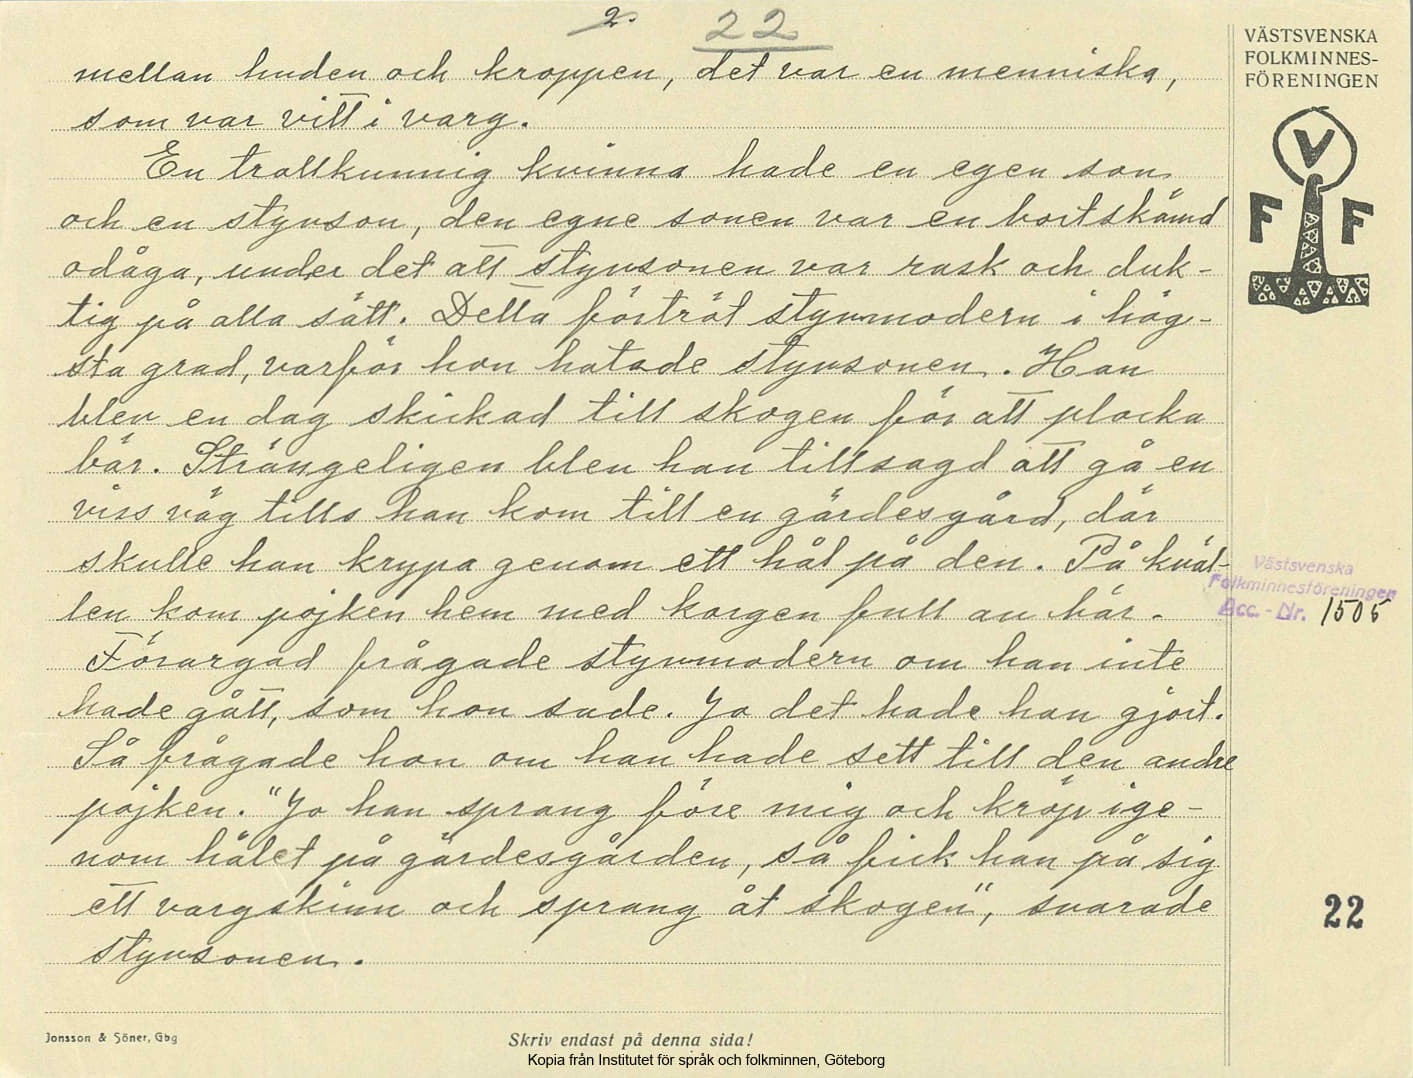 2. 22
mellan huden och kroppen, det var en menniska,
som var vitt i varg.
En trollkunnig kvinna hade en egen son
och en styvson, den egne sonen var en bortskämd
odåga, under det att styvsonen var rask och duk-
tig på alla sätt. Detta förtröt styvmodern i hög-
sta grad, varför hon hatade styvsonen. Han
blev en dag skickad till skogen för att plocka
bär. Strängeligen blev han tillsagd att gå en
viss väg tills han kom till en gärdesgård, där
skulle han krypa genom ett hål på den. På kväl-
len kom pojken hem med korgen full av bär.
Förargad frågade styvmodern om han inte
hade gått, som hon sade. Jo det hade han gjort.
Så frågade hon om han hade sett till den andre
pojken. "Jo han sprang före mig och kröp ige-
nom hålet på gärdesgården, så fick han på sig
ett vargskinn och sprang åt skogen", svarade
styvsonen.
VÄSTSVENSKA
FOLKMINNES-
FÖRENINGEN
V
F F
Västsvenska
Folkminnesföreningen
Acc.-Nr. 1505
22
Jonsson & Söner, Gbg
Skriv endast på denna sida!
Kopia från Institutet för språk och folkminnen, Göteborg